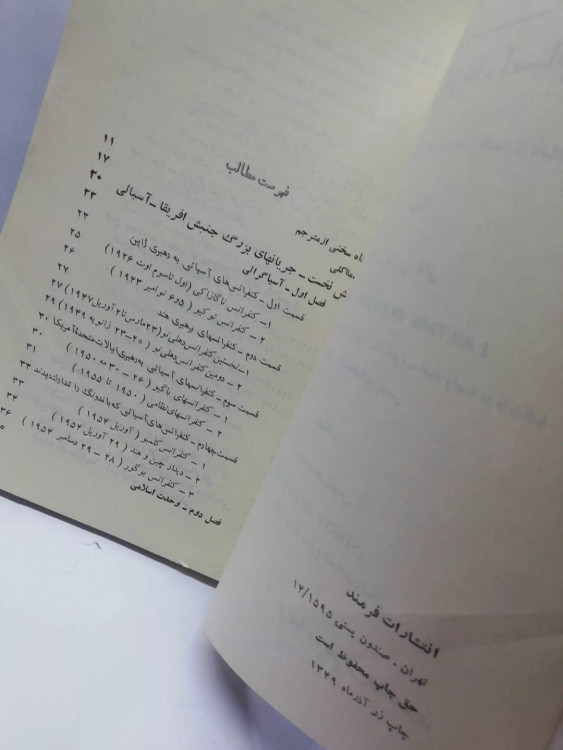 فهرست مطالب
سخنی از مترجم ۱۱
۱۷
نخست ـ جریانهای بزرگ جنبش افریقا ـ آسیائی ۲۰
فصل اول ـ آسیاگرائی ۲۲
قسمت اول ـ کنفرانس‌های آسیائی به رهبری ژاپن ۲۳
۱ ـ کنفرانس ناگازاکی (اول تا سوم اوت ۱۹۲۶) ۲۵
۲ ـ کنفرانس توکیو (۵ و ۶ نوامبر ۱۹۴۳) ۲۶
قسمت دوم ـ کنفرانسهای برهبری هند ۲۷
۱ ـ نخستین کنفرانس دهلی‌نو (۲۳ مارس تا ۲ آوریل ۱۹۴۷) ۲۷
۲ ـ دومین کنفرانس دهلی‌نو (۲۰ ـ ۲۳ ژانویه ۱۹۴۹) ۲۹
قسمت سوم ـ کنفرانسهای آسیائی به‌رهبری ایالات متحدهٔ آمریکا ۳۰
۱ ـ کنفرانسهای باگیو (۲۶ ـ ۳۰ مه ۱۹۵۰) ۳۰
۲ ـ کنفرانسهای نظامی (۱۹۵۰ تا ۱۹۵۵) ۳۱
قسمت چهارم ـ کنفرانس‌های آسیائی که باندونگ را تدارک دیدند ۳۳
۱ ـ کنفرانس کلمبو (آوریل ۱۹۵۴) ۳۳
۲ ـ دیدار چین و هند (۲۹ آوریل ۱۹۵۴) ۳۴
۳ ـ کنفرانس بوگور (۲۸ ـ ۲۹ دسامبر ۱۹۵۴) ۳۶
فصل دوم ـ وحدت اسلامی
انتشارات فرمند
تهران . صندوق پستی ۱۲/۱۵۹۵
حق چاپ محفوظ است
چاپ زر آذرماه ۱۳۴۹